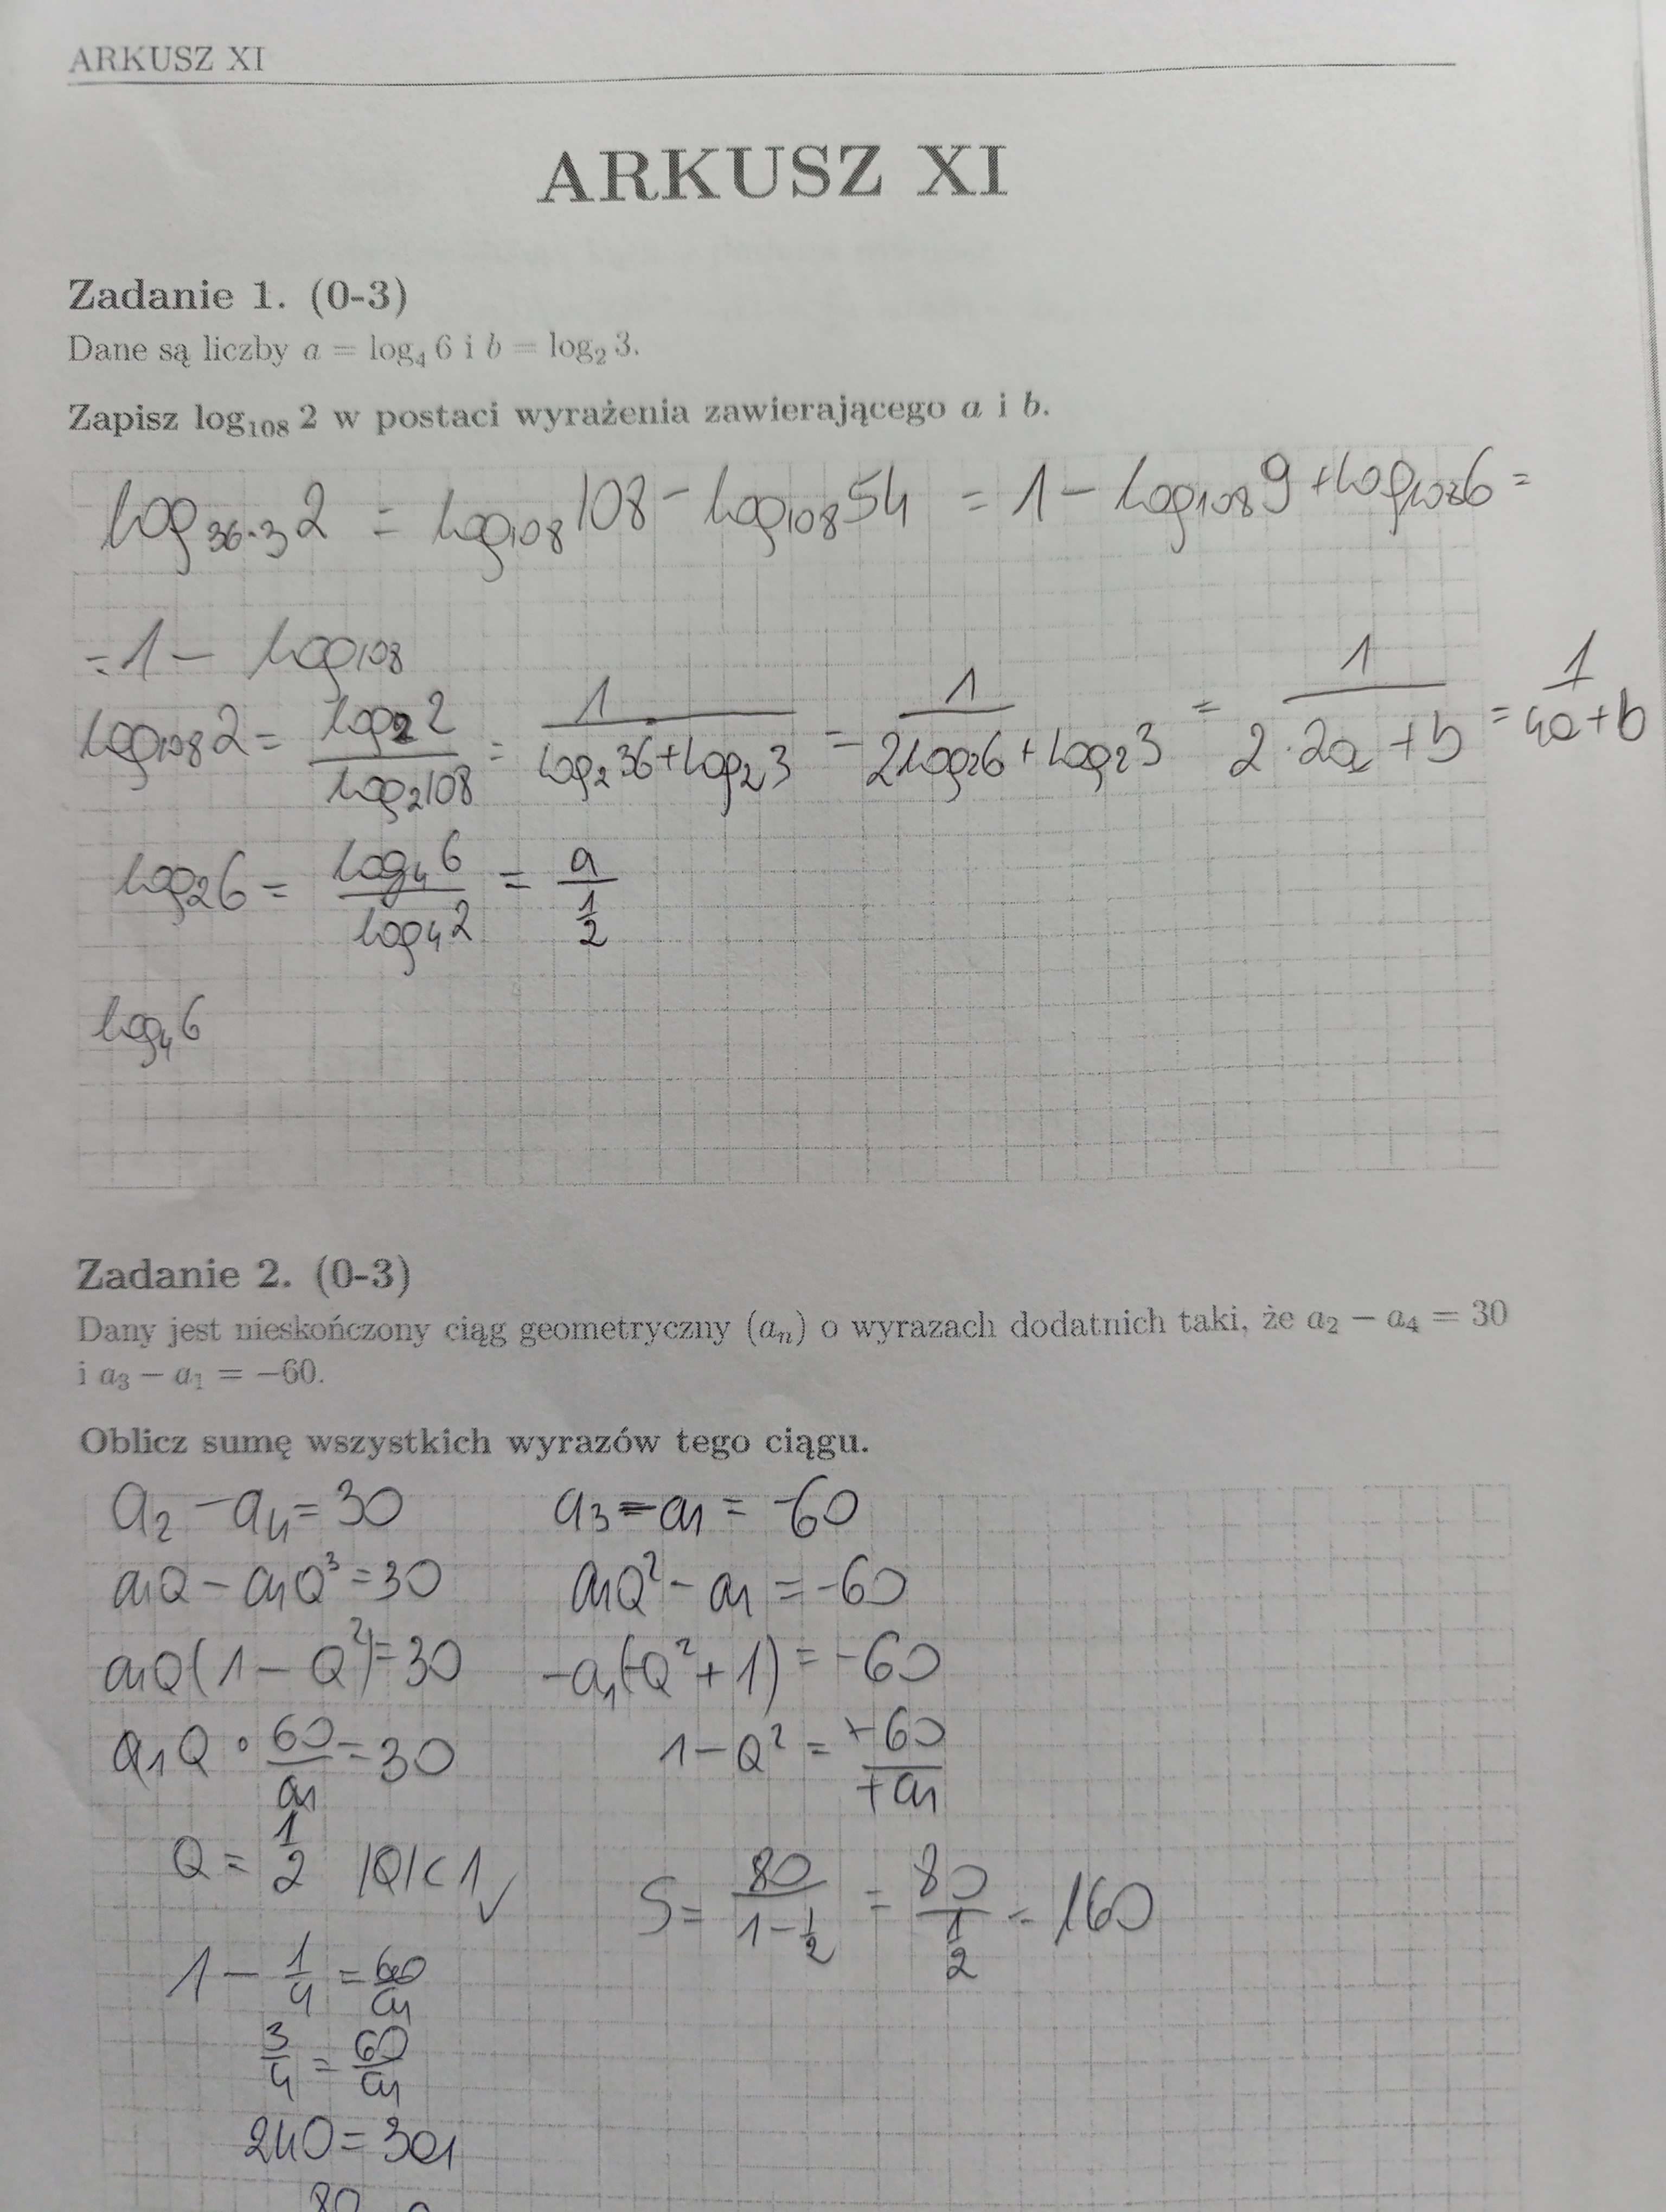 ARKUSZ XI
ARKUSZ XI
Zadanie 1. (0-3)
Dane są liczby a = log₄ 6 i b = log₂ 3.
Zapisz log₁₀₈ 2 w postaci wyrażenia zawierającego a i b.
log₃₆.₃ 2 = log₁₀₈ 108 - log₁₀₈ 54 = 1 - log₁₀₈ 9 + log₁₀₈ 6 =
= 1 - log₁₀₈
log₁₀₈ 2 = log₂ 2 / log₂ 108 = 1 / (log₂ 36 + log₂ 3) = 1 / (2log₂ 6 + log₂ 3) = 1 / (2·2a + b) = 1 / (4a + b)
log₂ 6 = log₄ 6 / log₄ 2 = a / (1/2)
log₄ 6
Zadanie 2. (0-3)
Dany jest nieskończony ciąg geometryczny (aₙ) o wyrazach dodatnich taki, że a₂ − a₄ = 30
i a₃ − a₁ = −60.
Oblicz sumę wszystkich wyrazów tego ciągu.
a₂ - a₄ = 30 a₃ - a₁ = -60
a₁Q - a₁Q³ = 30 a₁Q² - a₁ = -60
a₁Q(1 - Q²) = 30 -a₁(-Q² + 1) = -60
a₁Q · 60/a₁ = 30 1 - Q² = +60/+a₁
Q = 1/2 |Q| < 1 ✓ S = 80 / (1 - 1/2) = 80 / (1/2) = 160
1 - 1/4 = 60/a₁
3/4 = 60/a₁
240 = 3a₁